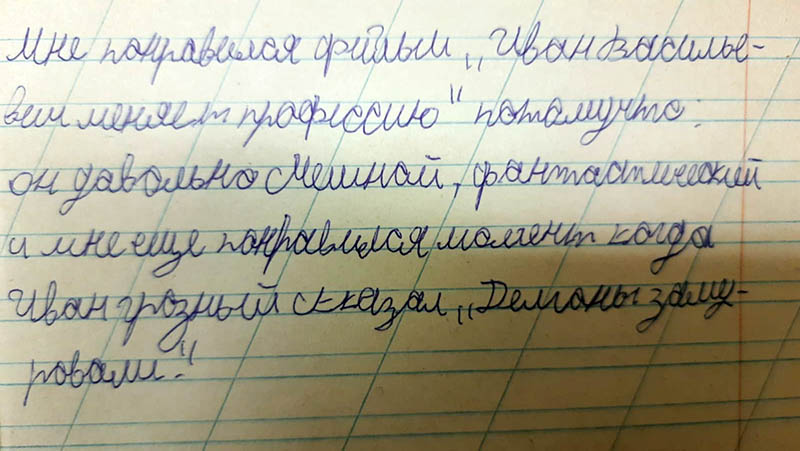 Мне понравился фильм „Иван Василье-
вич меняет профессию" потамучто:
он давольно смешной, фантастический
и мне еще понравился момент когда
Иван грозный сказал „Демоны заму-
ровали."